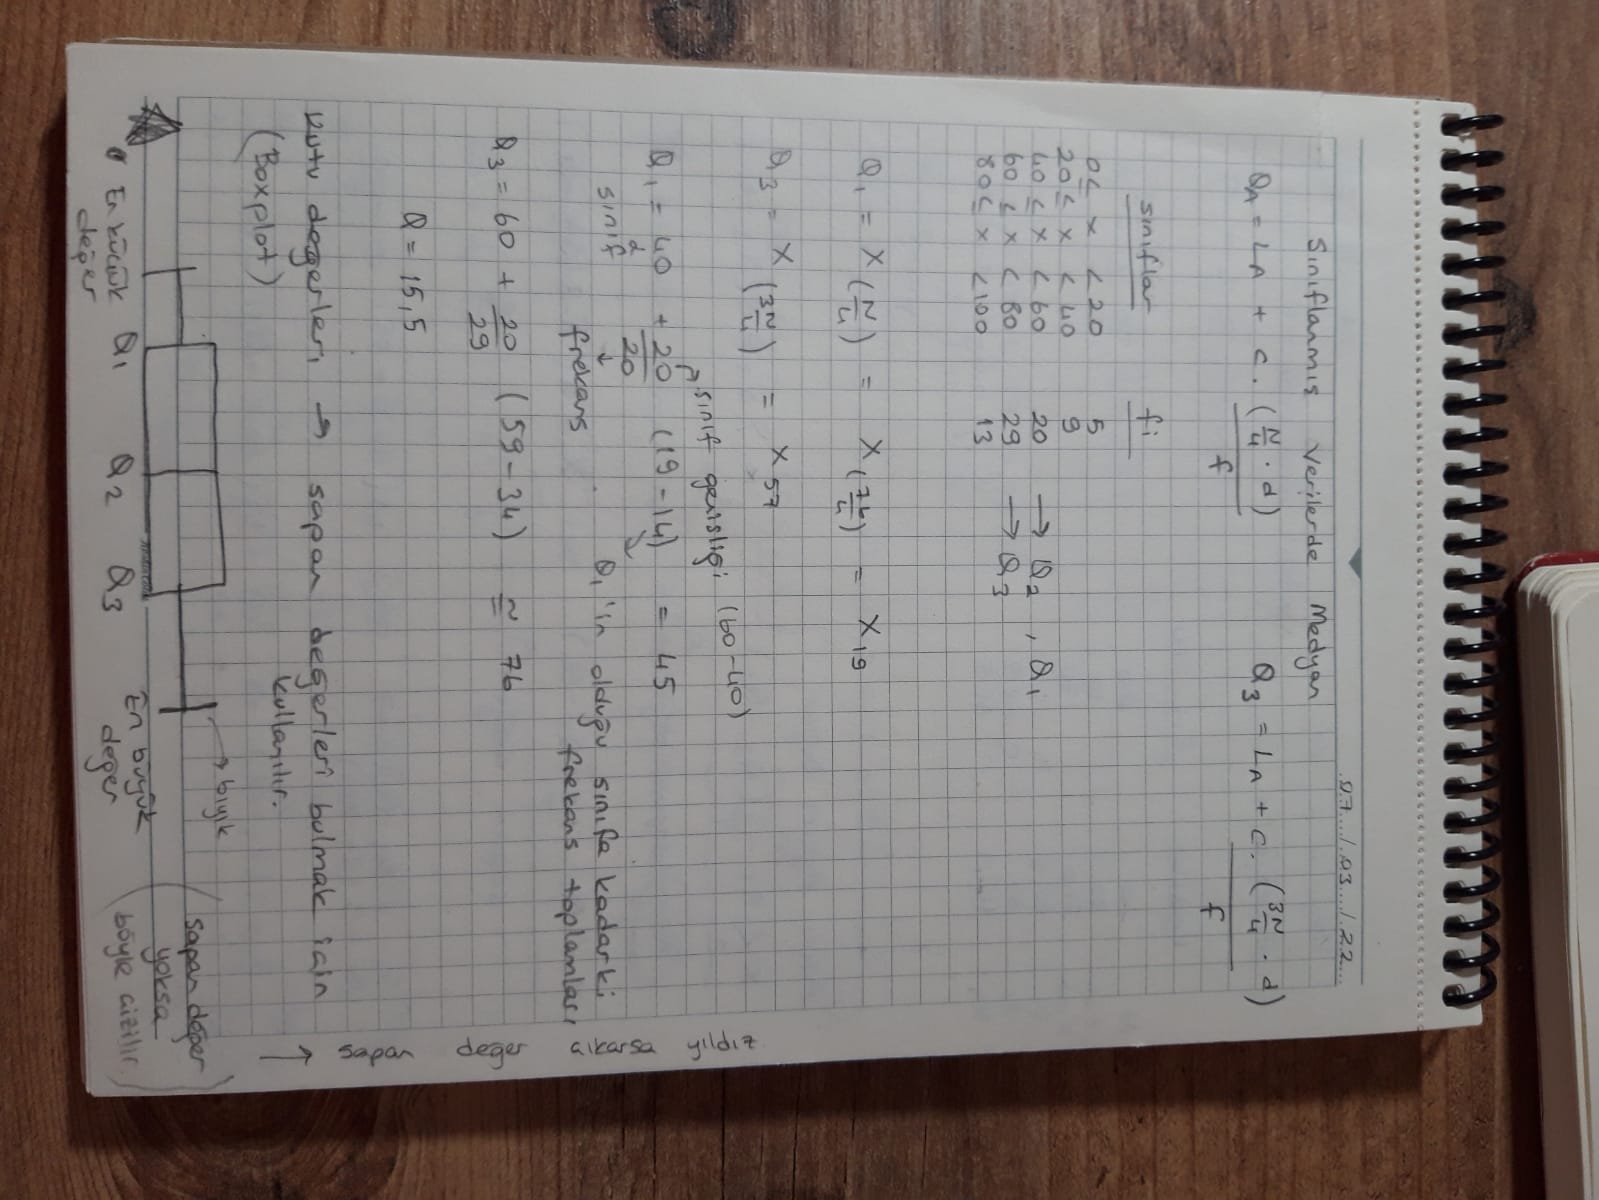 07/03/22
Sınıflanmış Verilerde Medyan
QA = LA + C. (N/4 . d) / f
Q3 = LA + C. (3N/4 . d) / f
sınıflar fi
0≤ x <20 5
20≤ x <40 9
40≤ x <60 20 → Q2, Q1
60≤ x <80 29 → Q3
80≤ x <100 13
Q1 = X (N/4) = X (76/4) = X 19
Q3 = X (3N/4) = X 57
sınıf genişliği (60-40)
Q1 = 40 + 20/20 (19-14) = 45
sınıf
frekans
Q1'in olduğu sınıfa kadarki
frekans toplamları
Q3 = 60 + 20/29 (59-34) ≅ 76
Q = 15,5
Kutu değerleri → sapan değerleri bulmak için
(Boxplot) kullanılır.
→ bıyık
En küçük değer Q1 Q2 Q3 En büyük değer
(sapan değer
yoksa
böyle çizilir.)
→ sapan değer çıkarsa yıldız